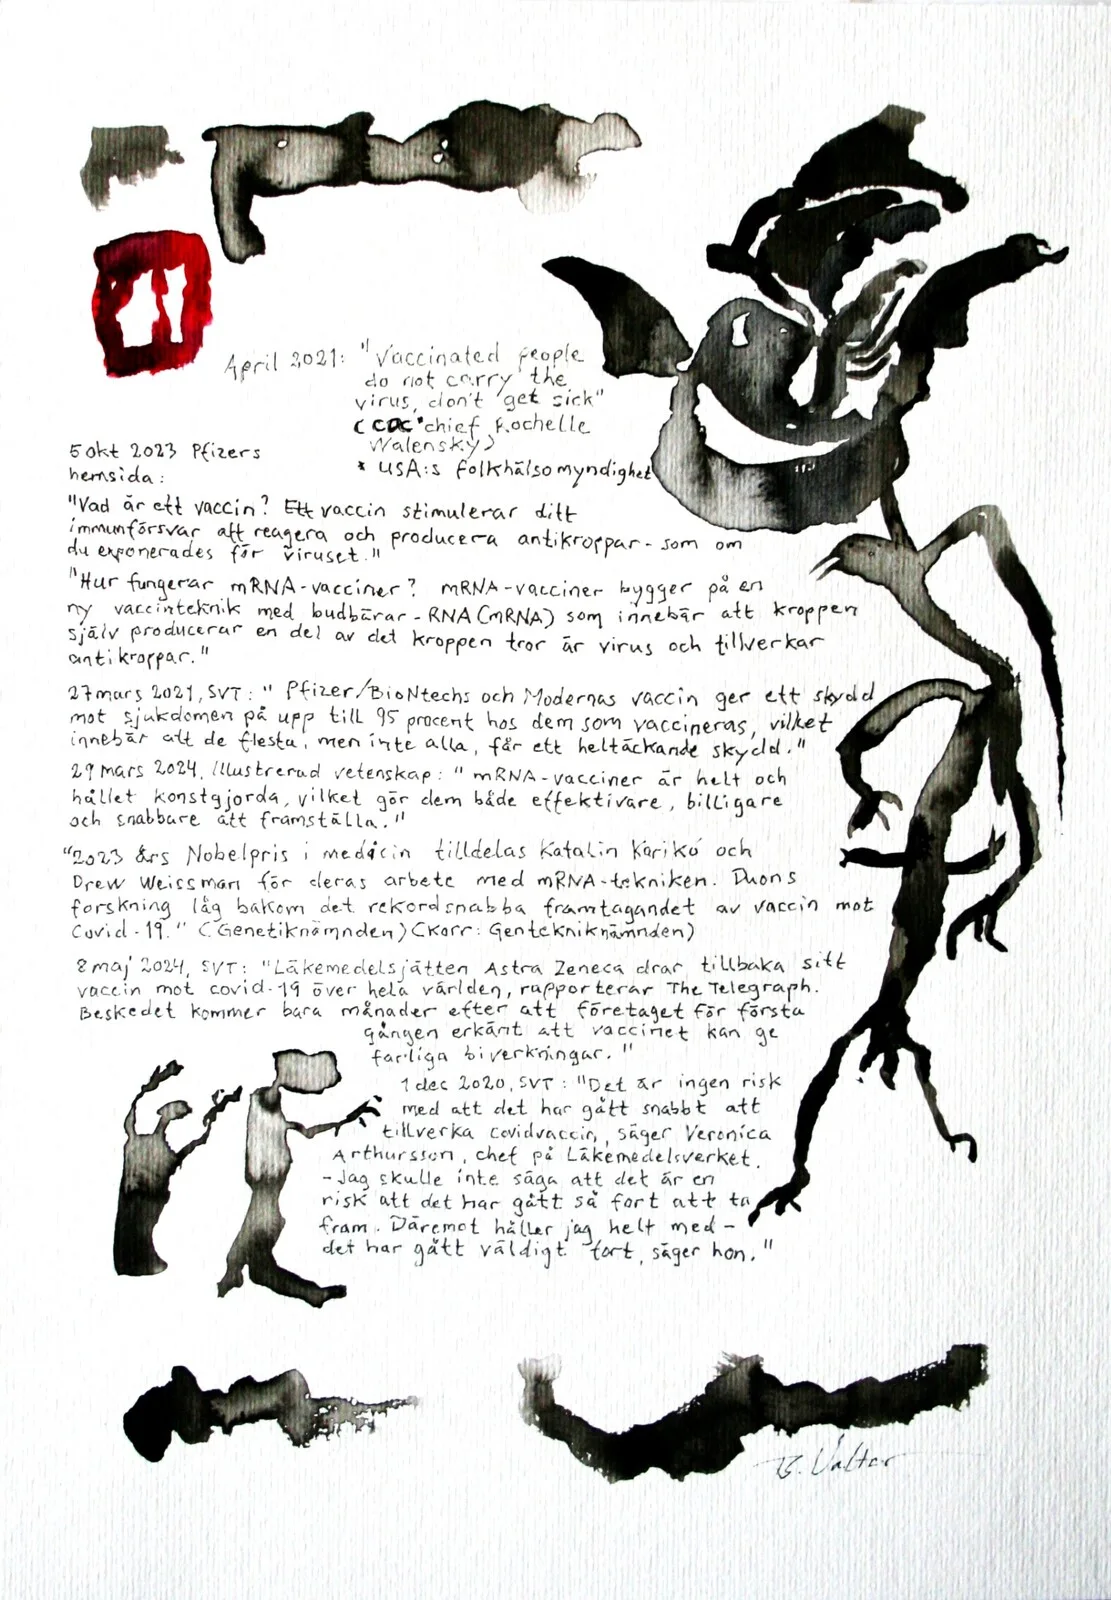 April 2021: "Vaccinated people
do not carry the
virus, don't get sick"
(CDC*chief Rochelle
Walensky)
* USA:s folkhälsomyndighet
5 okt 2023 Pfizers
hemsida:
"Vad är ett vaccin? Ett vaccin stimulerar ditt
immunförsvar att reagera och producera antikroppar - som om
du exponerades för viruset."
"Hur fungerar mRNA-vacciner? mRNA-vacciner bygger på en
ny vaccinteknik med budbärar-RNA (mRNA) som innebär att kroppen
själv producerar en del av det kroppen tror är virus och tillverkar
antikroppar."
27 mars 2021, SVT: "Pfizer/BioNtechs och Modernas vaccin ger ett skydd
mot sjukdomen på upp till 95 procent hos dem som vaccineras, vilket
innebär att de flesta, men inte alla, får ett heltäckande skydd."
29 mars 2024, Illustrerad vetenskap: "mRNA-vacciner är helt och
hållet konstgjorda, vilket gör dem både effektivare, billigare
och snabbare att framställa."
"2023 års Nobelpris i medicin tilldelas Katalin Karikó och
Drew Weissman för deras arbete med mRNA-tekniken. Duons
forskning låg bakom det rekordsnabba framtagandet av vaccin mot
Covid-19." (Genetiknämnden) (Korr: Gentekniknämnden)
8 maj 2024, SVT: "Läkemedelsjätten Astra Zeneca drar tillbaka sitt
vaccin mot covid-19 över hela världen, rapporterar The Telegraph.
Beskedet kommer bara månader efter att företaget för första
gången erkänt att vaccinet kan ge
farliga biverkningar."
1 dec 2020, SVT: "Det är ingen risk
med att det har gått snabbt att
tillverka covidvaccin, säger Veronica
Arthursson, chef på Läkemedelsverket.
- Jag skulle inte säga att det är en
risk att det har gått så fort att ta
fram. Däremot håller jag helt med -
det har gått väldigt fort, säger hon."
B. Valter